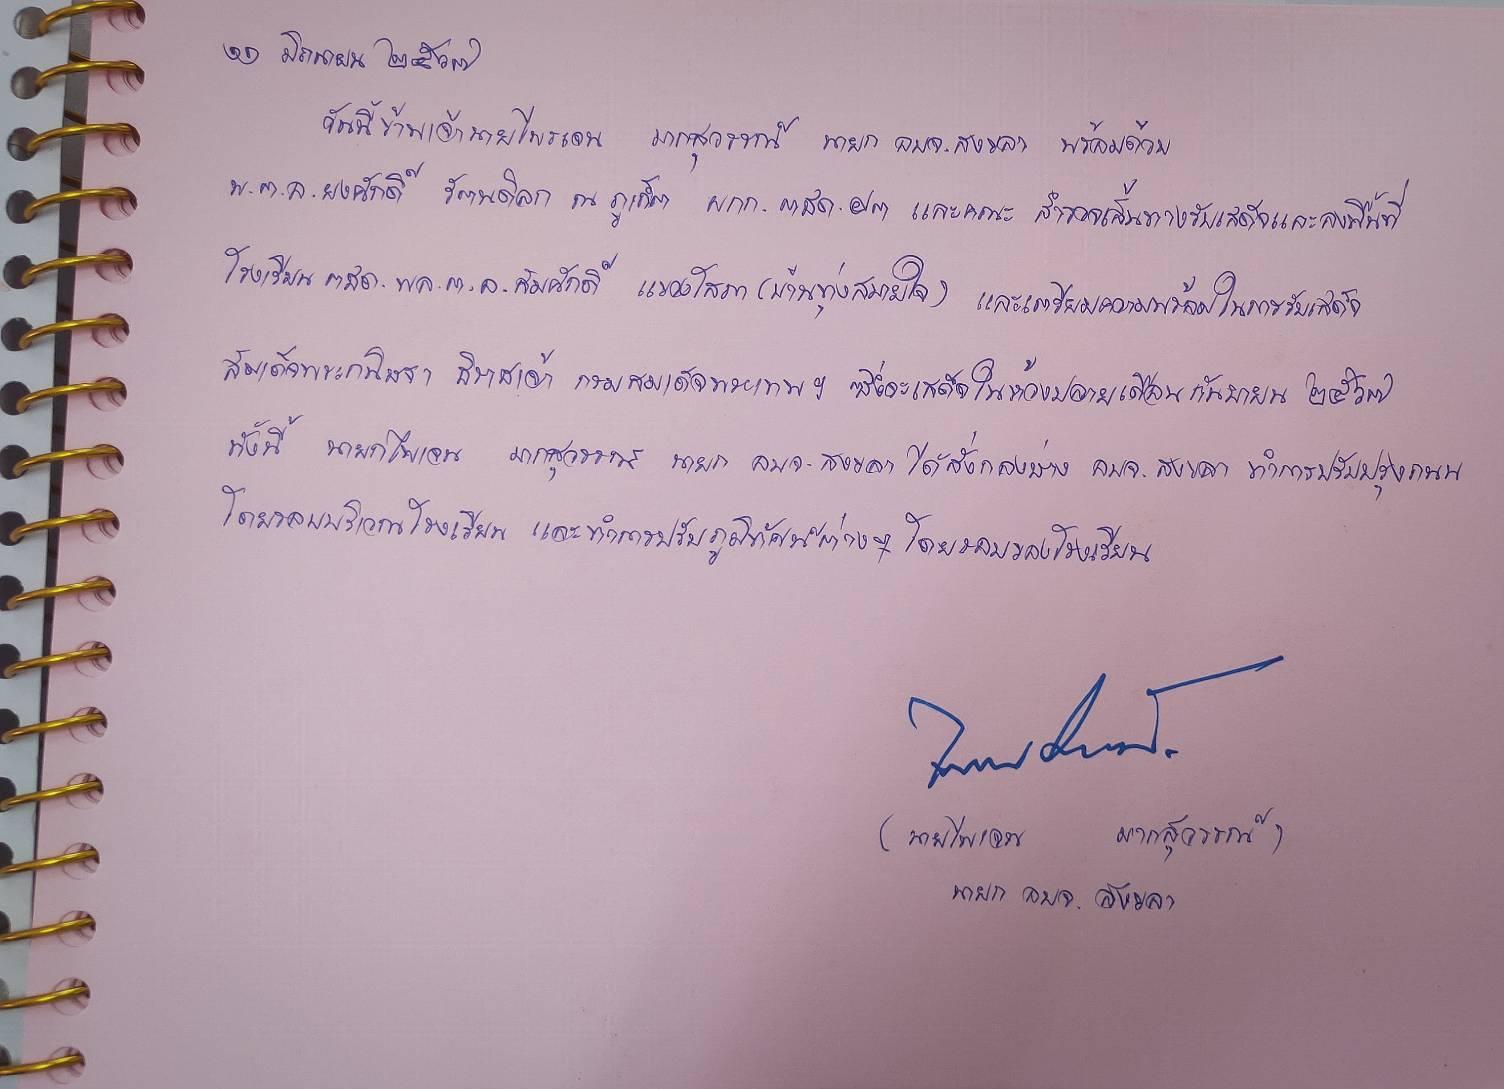 ๑๑ มิถุนายน ๒๕๖๗
วันนี้ข้าพเจ้านายไพเจน มากสุวรรณ์ นายก อบจ.สงขลา พร้อมด้วย
พ.ต.อ.ยงศักดิ์ รัตนดิลก ณ ภูเก็ต ผกก. ตชด.๔๓ และคณะ สำรวจเส้นทางรับเสด็จและลงพื้นที่
โรงเรียน ตชด. พล.ต.อ.สมศักดิ์ แขวงโสภา (บ้านทุ่งสบายใจ) และเตรียมความพร้อมในการรับเสด็จ
สมเด็จพระกนิษฐา ธิราชเจ้า กรมสมเด็จพระเทพฯ ซึ่งจะเสด็จในห้วงปลายเดือน กันยายน ๒๕๖๗
ทั้งนี้ นายกไพเจน มากสุวรรณ์ นายก อบจ.สงขลา ได้สั่งกองช่าง อบจ.สงขลา ทำการปรับปรุงถนน
โดยรอบบริเวณโรงเรียน และทำการปรับภูมิทัศน์ต่างๆ โดยรอบของโรงเรียน
(นายไพเจน มากสุวรรณ์)
นายก อบจ. สงขลา